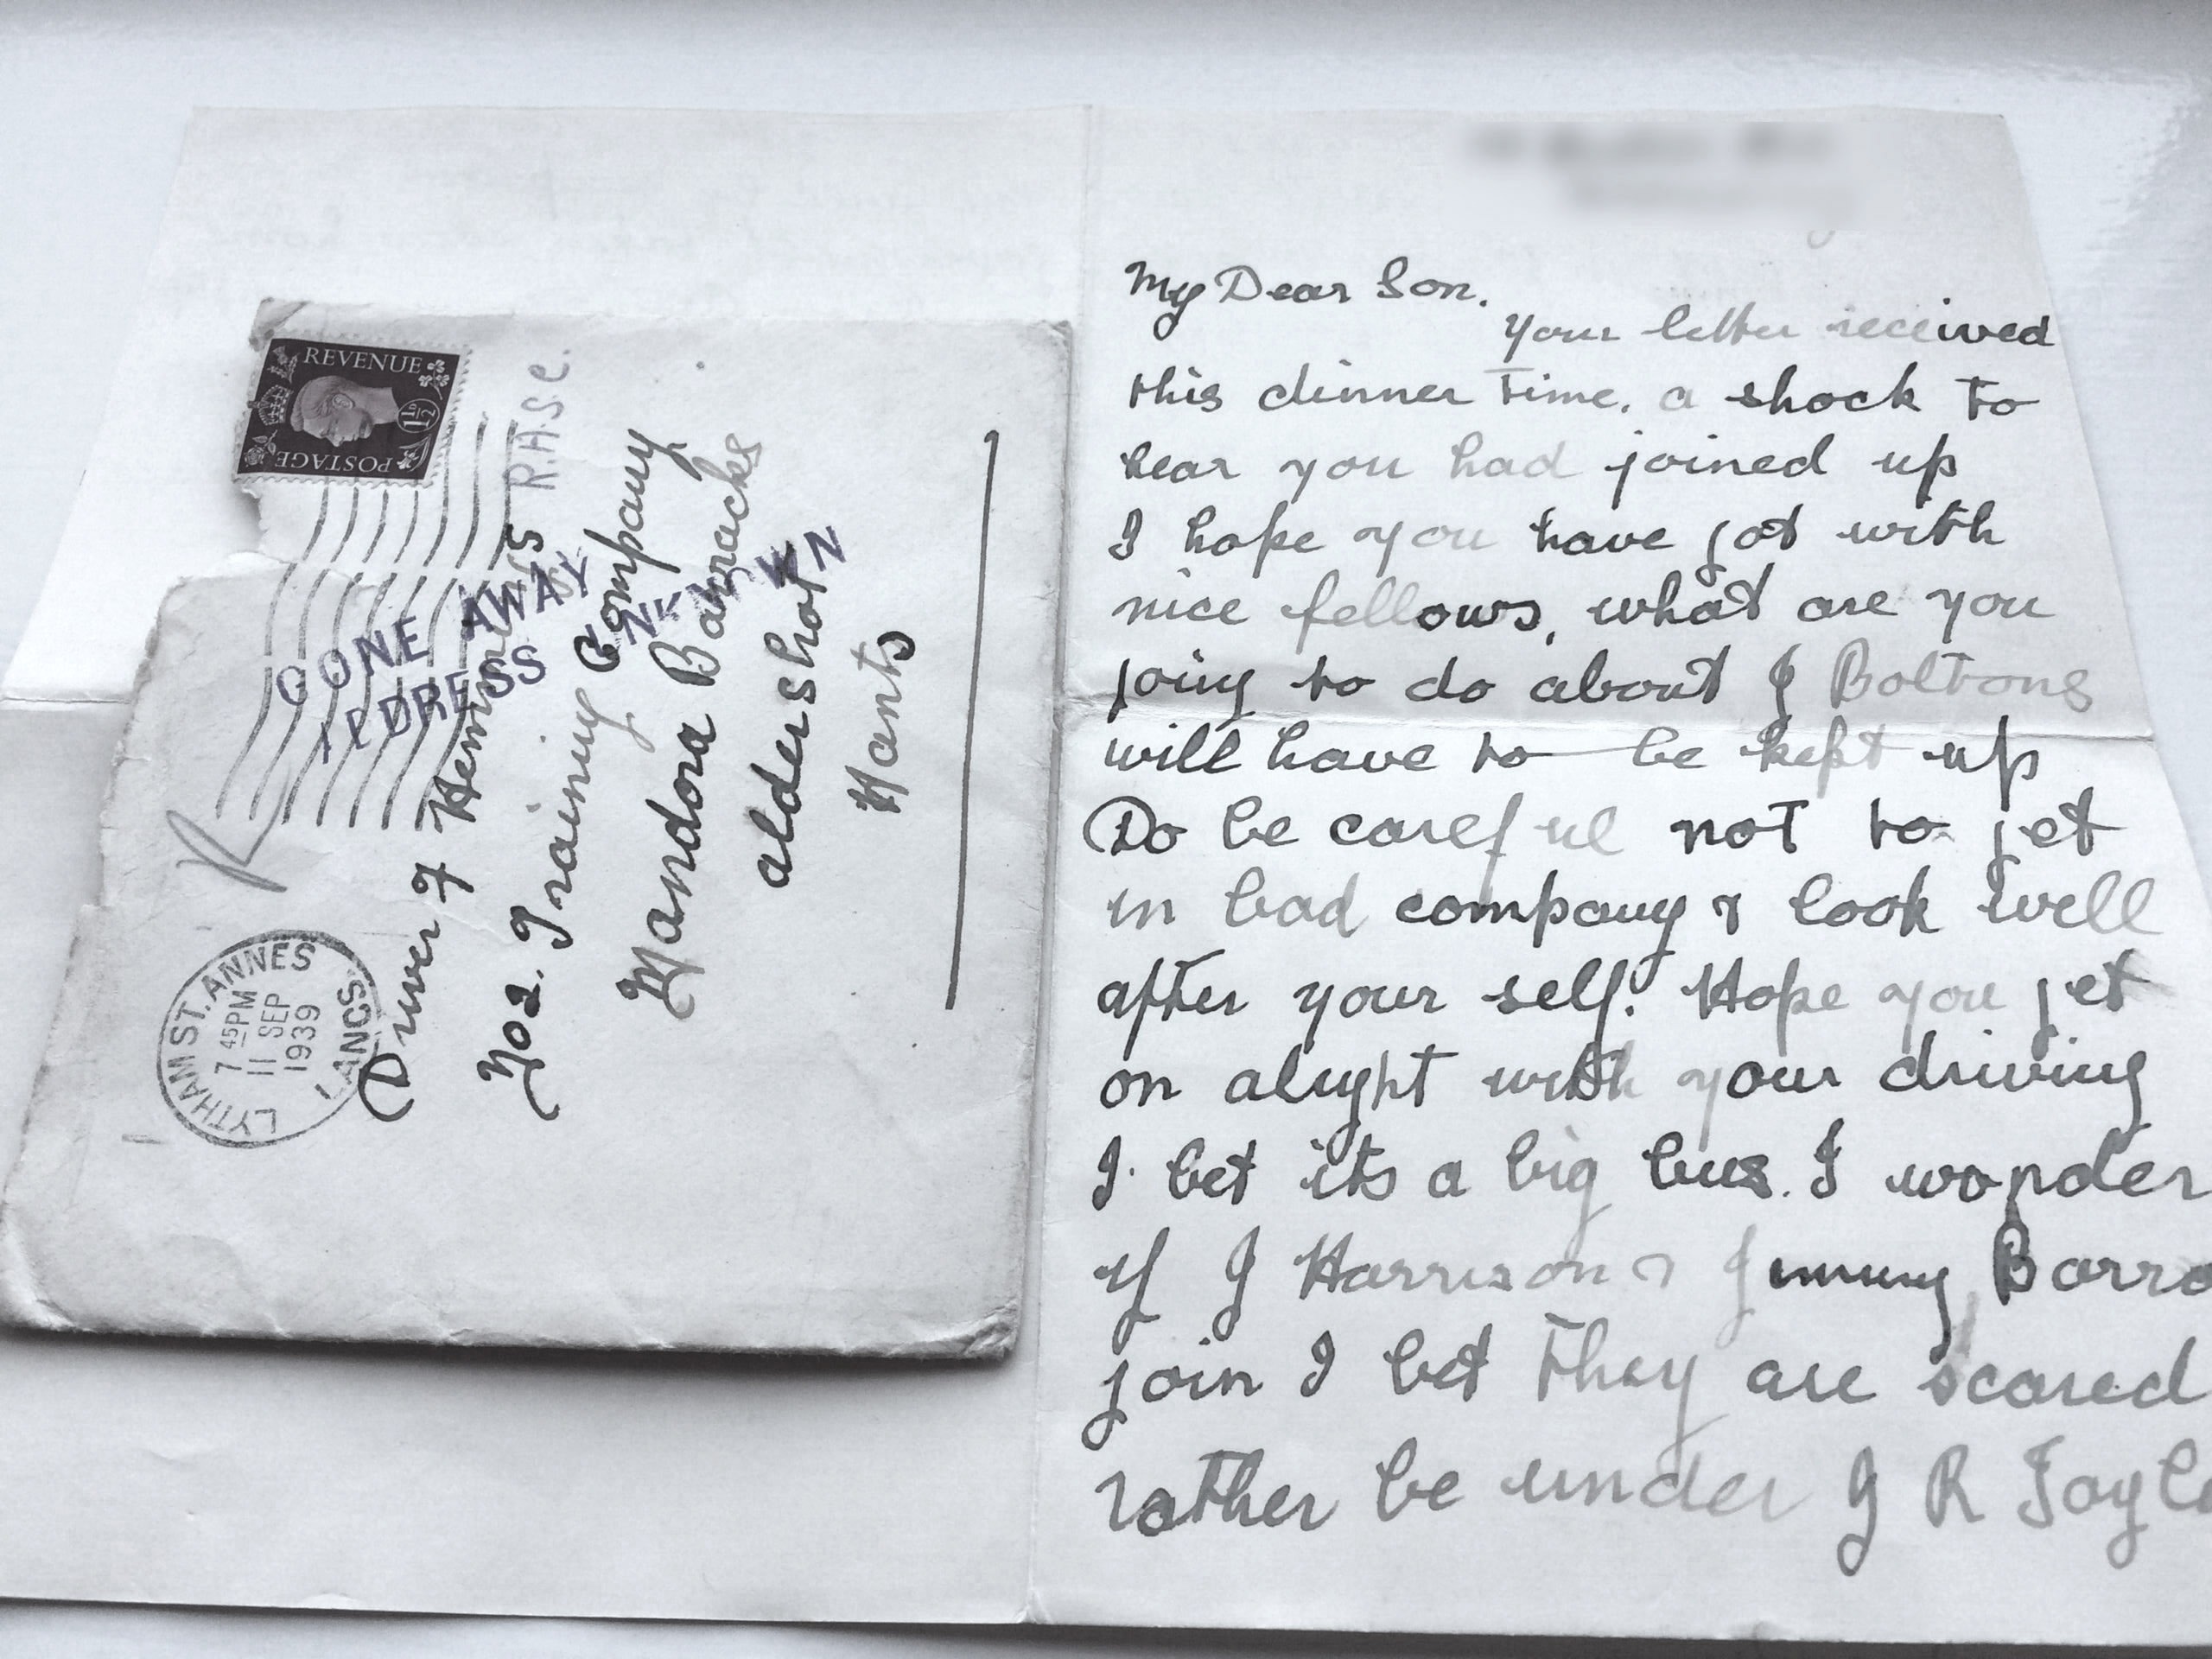 REVENUE
1½D
POSTAGE
LYTHAM ST. ANNES
7 45 PM
11 SEP
1939
LANCS
R
GONE AWAY
ADDRESS UNKNOWN
Driver J R.A.S.C.
No 2. Training Company
Mandora Barracks
aldershot
Hants
My Dear Son.
Your letter received
this dinner time. a shock to
hear you had joined up
I hope you have got with
nice fellows, what are you
going to do about J Boltons
will have to be kept up
Do be careful not to get
in bad company & look well
after your self. Hope you get
on alright with your driving
I bet its a big bus. I wonder
if J Harrison & Jimmy Barro
join I bet they are scared
rather be under J R Tayl